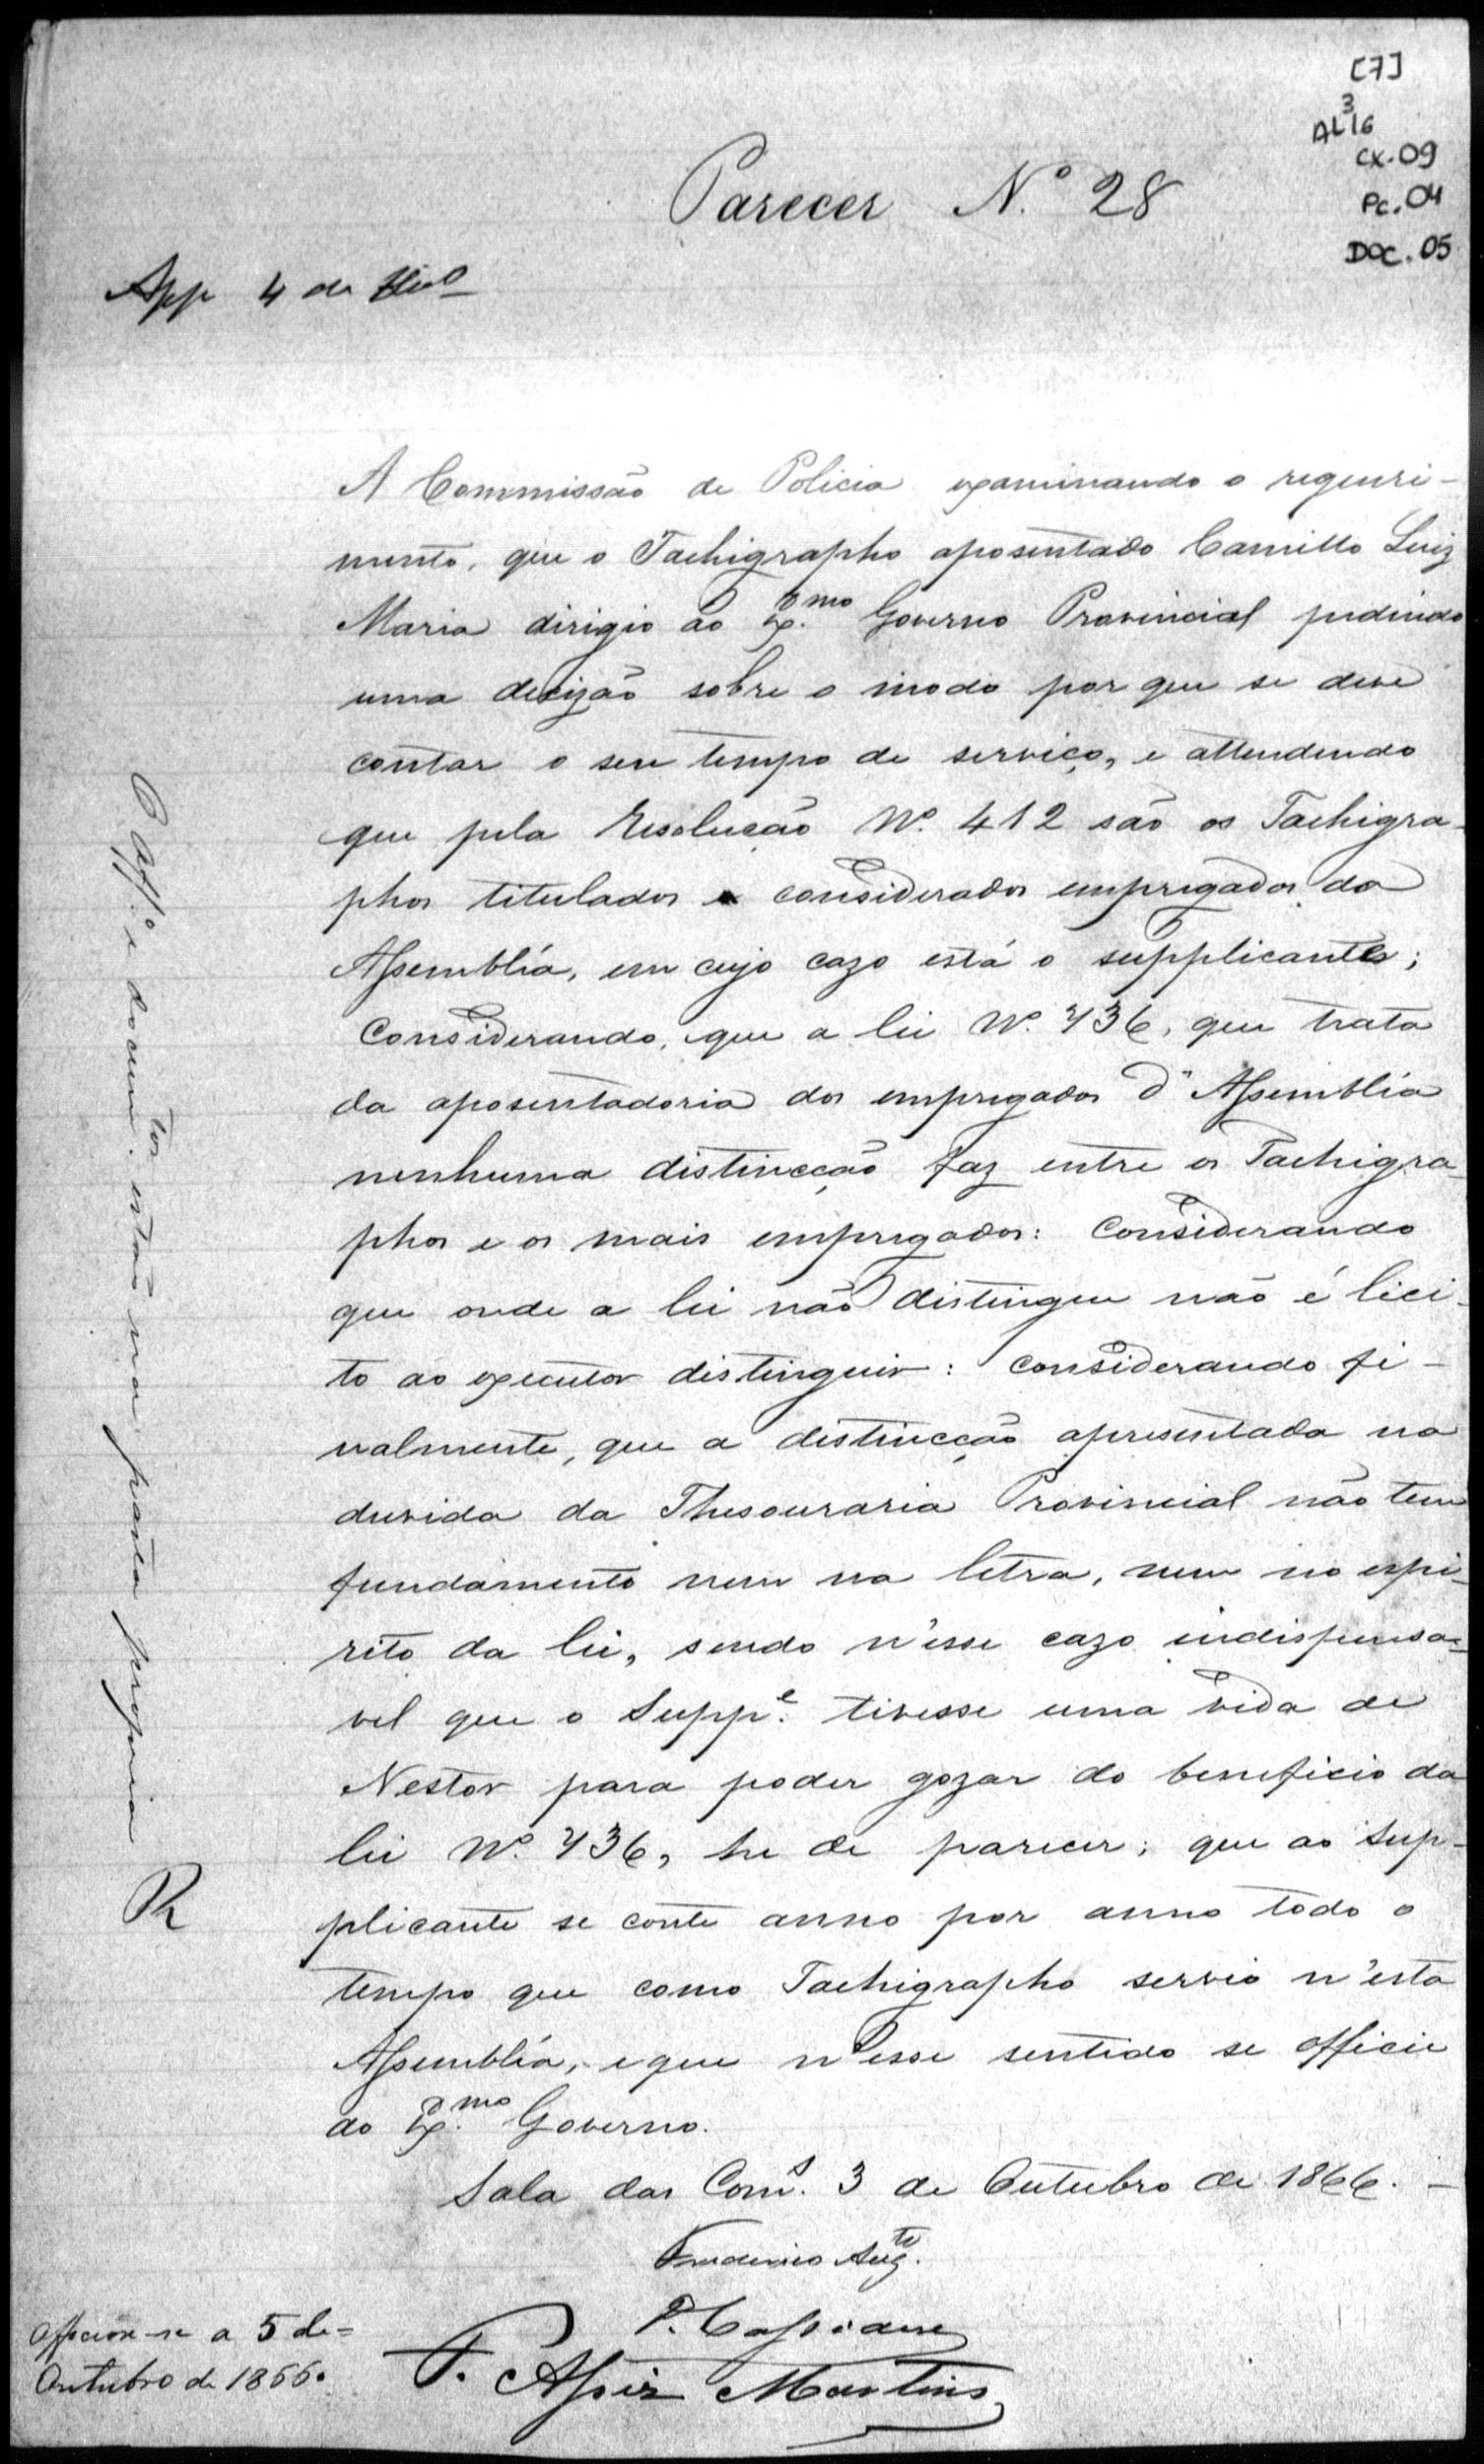 [7]
3
AL16
CX.09
Pc.04
DOC.05
Parecer N.º 28
App 4 de
A Commissão de Policia examinando o requeri-
mento, que o Tachigrapho aposentado Camillo Luiz
Maria dirigio ao Ex.mo Governo Provincial pedindo
uma decizão sobre o modo por que se deve
contar o seu tempo de serviço, e attendendo
que pela Resolução Nº. 412 são os Tachigra-
phos titulados e considerados empregados da
Assembléa, em cujo cazo está o supplicante;
Considerando, que a lei Nº. 736, que trata
da aposentadoria dos empregados d'Assembléa
nenhuma distincção faz entre os Tachigra-
phos e os mais empregados: Considerando
que onde a lei não distingue não é lici-
to ao executor distinguir: considerando fi-
nalmente, que a distincção apresentada na
duvida da Thesouraria Provincial não tem
fundamento nem na letra, nem no espi-
rito da lei, sendo n'esse cazo indispensa-
vel que o Supp.e tivesse uma vida de
Nestor para poder gozar do beneficio da
lei Nº. 736, he de parecer; que ao Sup-
plicante se conte anno por anno todo o
tempo que como Tachigrapho servio n'esta
Assembléa, e que n'esse sentido se officie
ao Ex.mo Governo.
Sala das Com.s 3 de Outubro de 1866.
Frederico Aug.to
P. Cassidane
F. Assis Martins
Officiou-se a 5 de=
Outubro de 1866.
O off.º e docum.tos estão na pasta propria